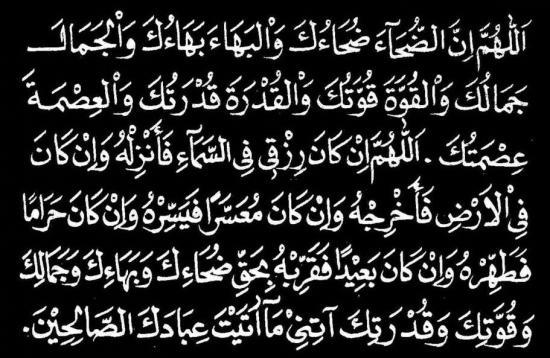 اَللّٰهُمَّ اِنَّ الضُّحَآءَ ضُحَاءُكَ وَالْبَهَاءَ بَهَاءُكَ وَالْجَمَالَ
جَمَالُكَ وَالْقُوَّةَ قُوَّتُكَ وَالْقُدْرَةَ قُدْرَتُكَ وَالْعِصْمَةَ
عِصْمَتُكَ . اَللّٰهُمَّ اِنْ كَانَ رِزْقِى فِى السَّمَآءِ فَأَنْزِلْهُ وَاِنْ كَانَ
فِى اْلاَرْضِ فَأَخْرِجْهُ وَاِنْ كَانَ مُعَسَّرًا فَيَسِّرْهُ وَاِنْ كَانَ حَرَامًا
فَطَهِّرْهُ وَاِنْ كَانَ بَعِيْدًا فَقَرِّبْهُ بِحَقِّ ضُحَاءِكَ وَبَهَاءِكَ وَجَمَالِكَ
وَقُوَّتِكَ وَقُدْرَتِكَ آتِنِىْ مَآ اٰتَيْتَ عِبَادَكَ الصَّالِحِيْنَ.